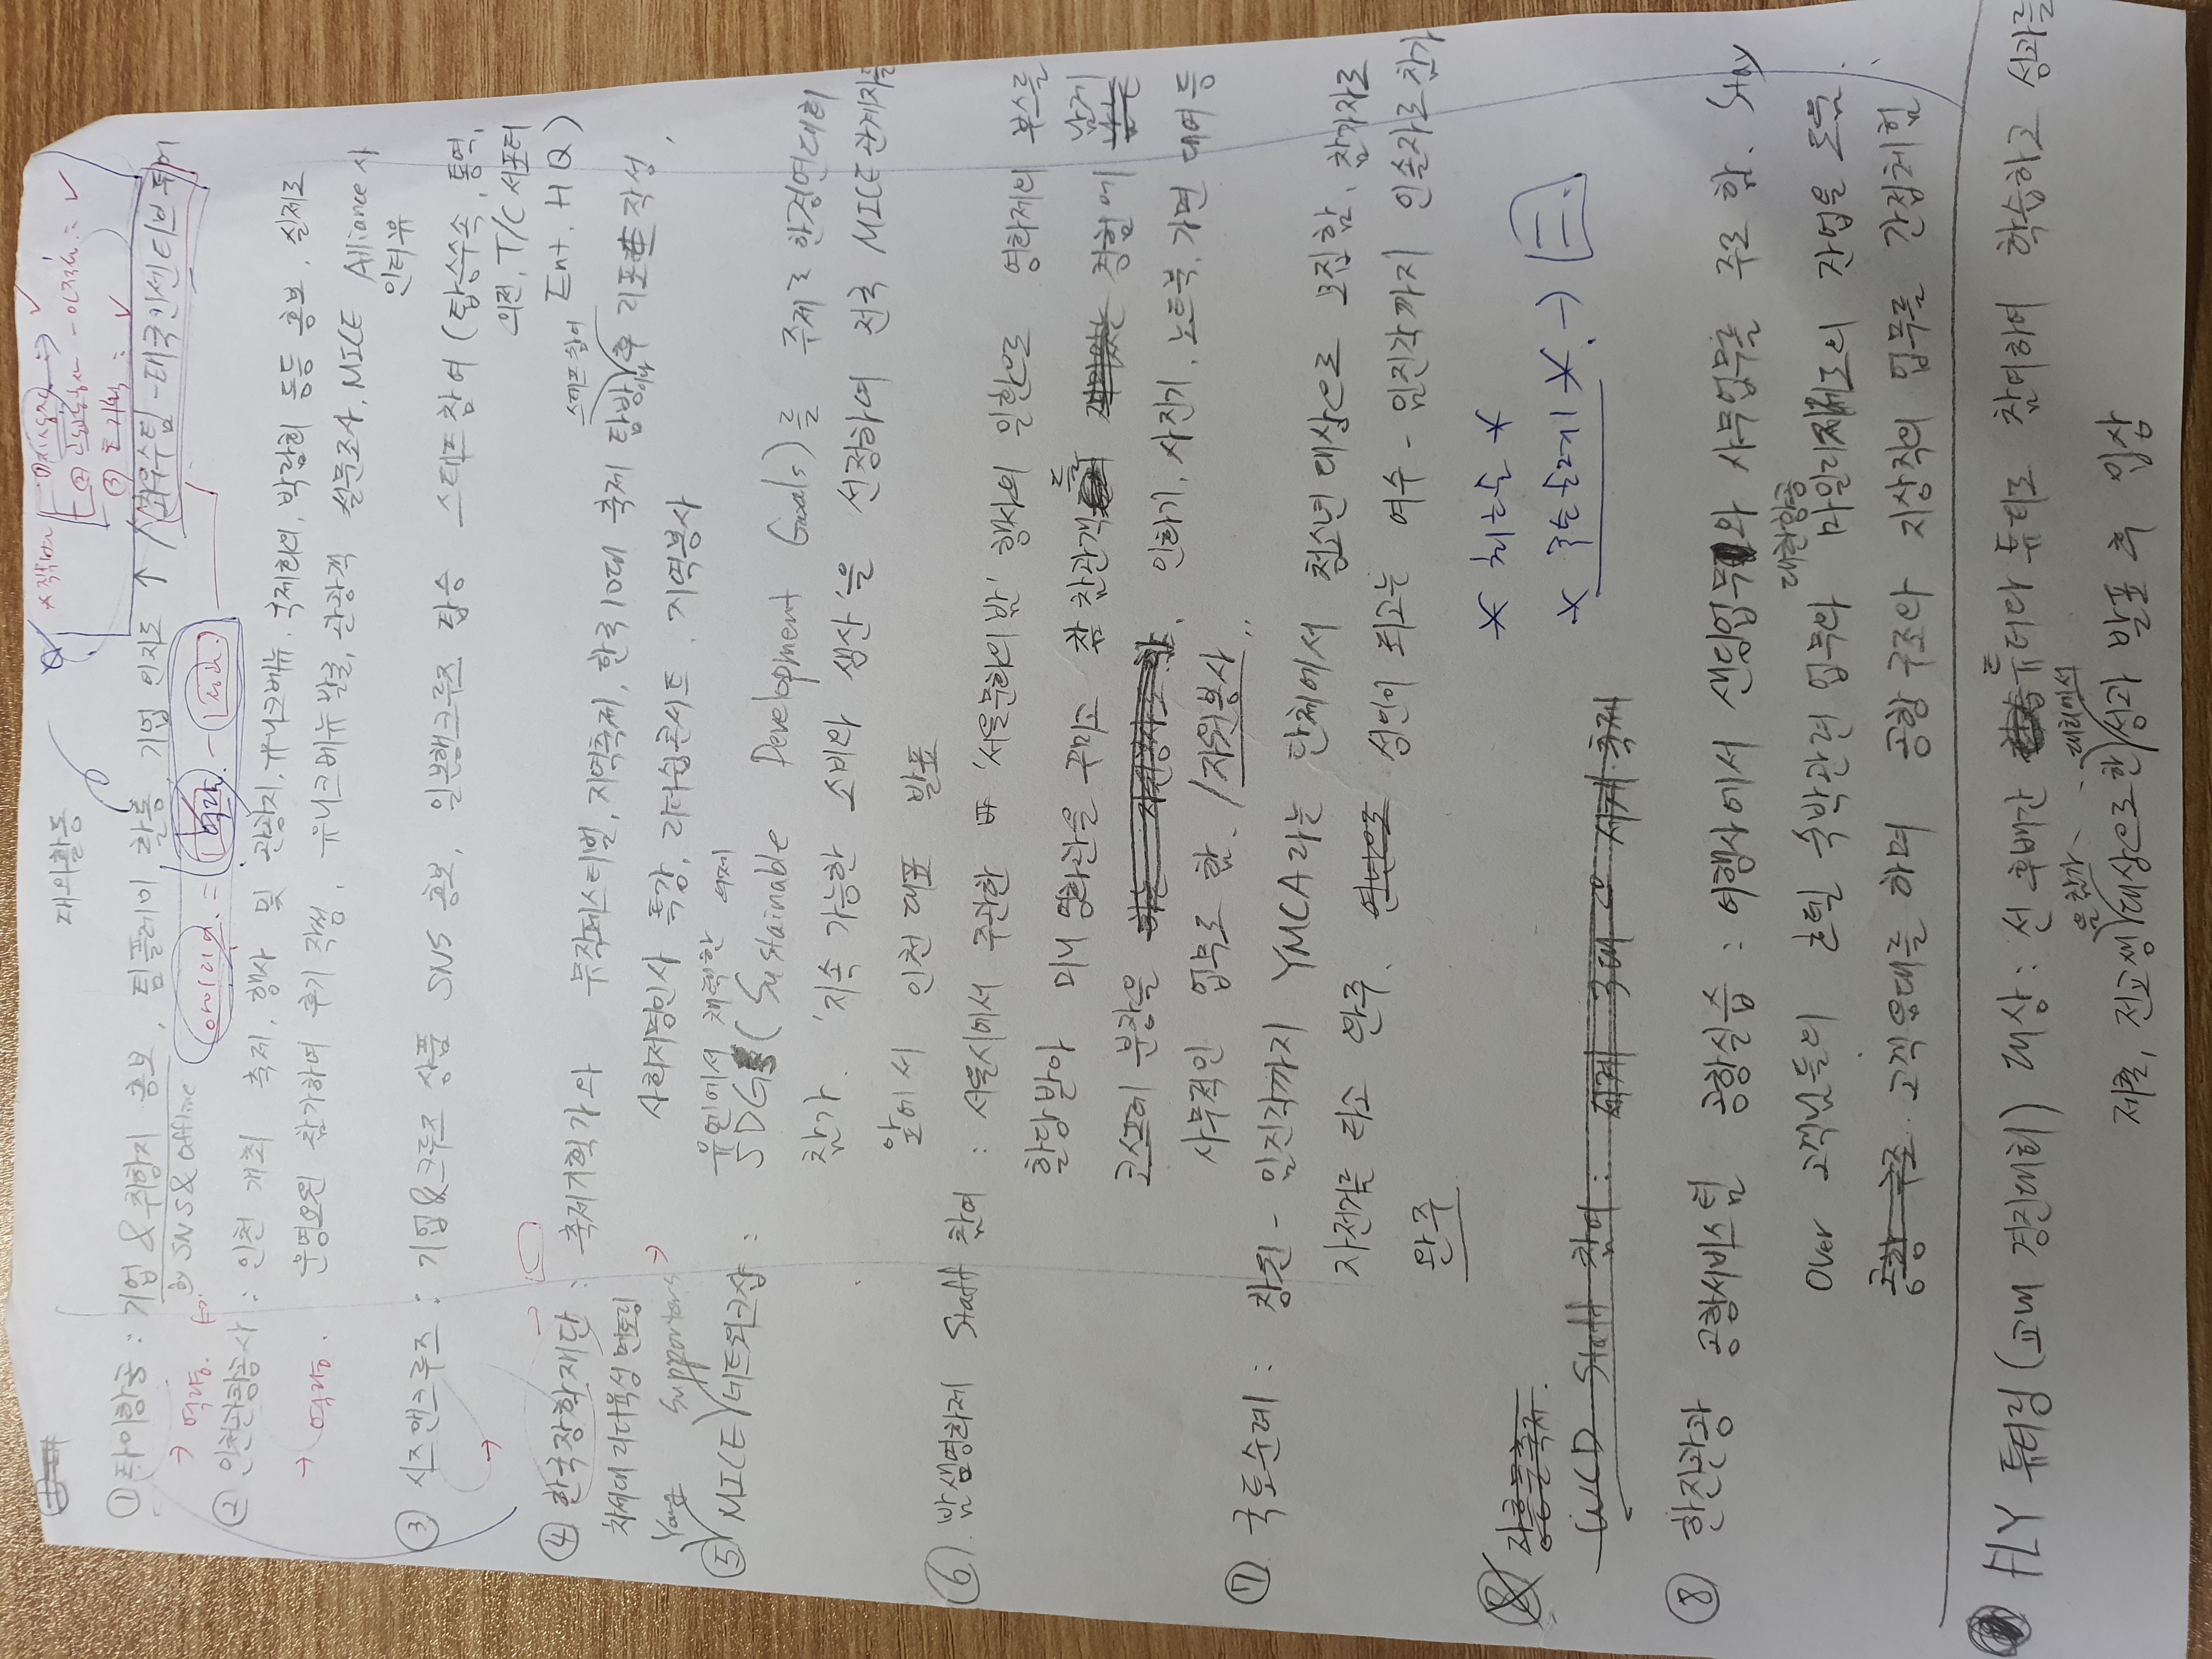 대외활동
① 타이항공 : 기업 & 취항지 홍보, 팀플레이 활동, 기업 인지도 ↑ / 최우수팀 - 태국인센티브투어
by SNS & offline
→ 역량.
② 인천관광공사 : 인천 개최 축제, 행사 및 관광지, 유니크베뉴, 국제회의, 박람회 등등 홍보, 실제로
→ 역량.
운영요원 참가하여 후기 작성, 유니크베뉴 발굴, 관광객 설문조사, MICE Alliance사
인터뷰
③ 시즈앤크루즈 : 기업&크루즈 상품 SNS 홍보, 일본행크루즈 탑승 스태프참여 (탑승수속, 통역,
의전, T/C 서포터
Ent. HQ)
스태프 참여
④ 한국장학재단 : 축제기획가와 뮤직페스티벌, 지역축제, 한국 10대 축제 탐방이나 후 리포트 작성,
차세대 리더육성 멘토링
사회저명인사 특강, 리더쉽콘서트, 지역봉사
Young Supporters
유엔에서 채택한 의제
⑤ MICE 네트워크샵 : SDGs (Sustainable Development Goals)를 주제로 한 경연대회
참가. '지속 가능한 소비와 생산'을 선정하여 전국 MICE 관계자들
앞에서 인천 대표 발표
⑥ 밤샘영화제 Staff 참여 : 서울시에서 주관한 '서울문화의 밤' 행사의 일환으로 영화제의 부스를
할당받아 미니 영화관을 꾸미고 참 참관객들 재미있는 경험에 남게
코스프레 분장을 하는 자원봉사도 함, 인화기, 사진기, 노트북, 가면 대여 등
사무적인 업무도 함. / 자원봉사..
⑦ 국토순례 : 창원 - 임진각까지 YMCA라는 단체에서 청소년 대상으로 모집함, 참가자로
자전거를 타고 완주. 성인이 되고는 여수 - 임진각까지 인솔자로 참가
완주
⑧ 장흥물축제.
WCD Staff 참여 : 세계 3대 축제
⑧ 한진관광 공항서비스팀 공항실습 : 여행사에서 샌딩업무와 사무업무를 주로 함. Stay
대한항공
Over 고객님들의 호텔 숙박관련 업무와 마일리지제도의 잔업을 도움.
공항 구조 고객응대를 하며 공항 구조와 지상직의 업무를 간접체험
FLY 튜터링 (교내 경진대회) 대상 : 선 후배간 튜터와 튜티로 참여하여 학습하고 성과를
은 참가 대회에서
제출, 전교생 대상으로 한 성과 발표 후 입상